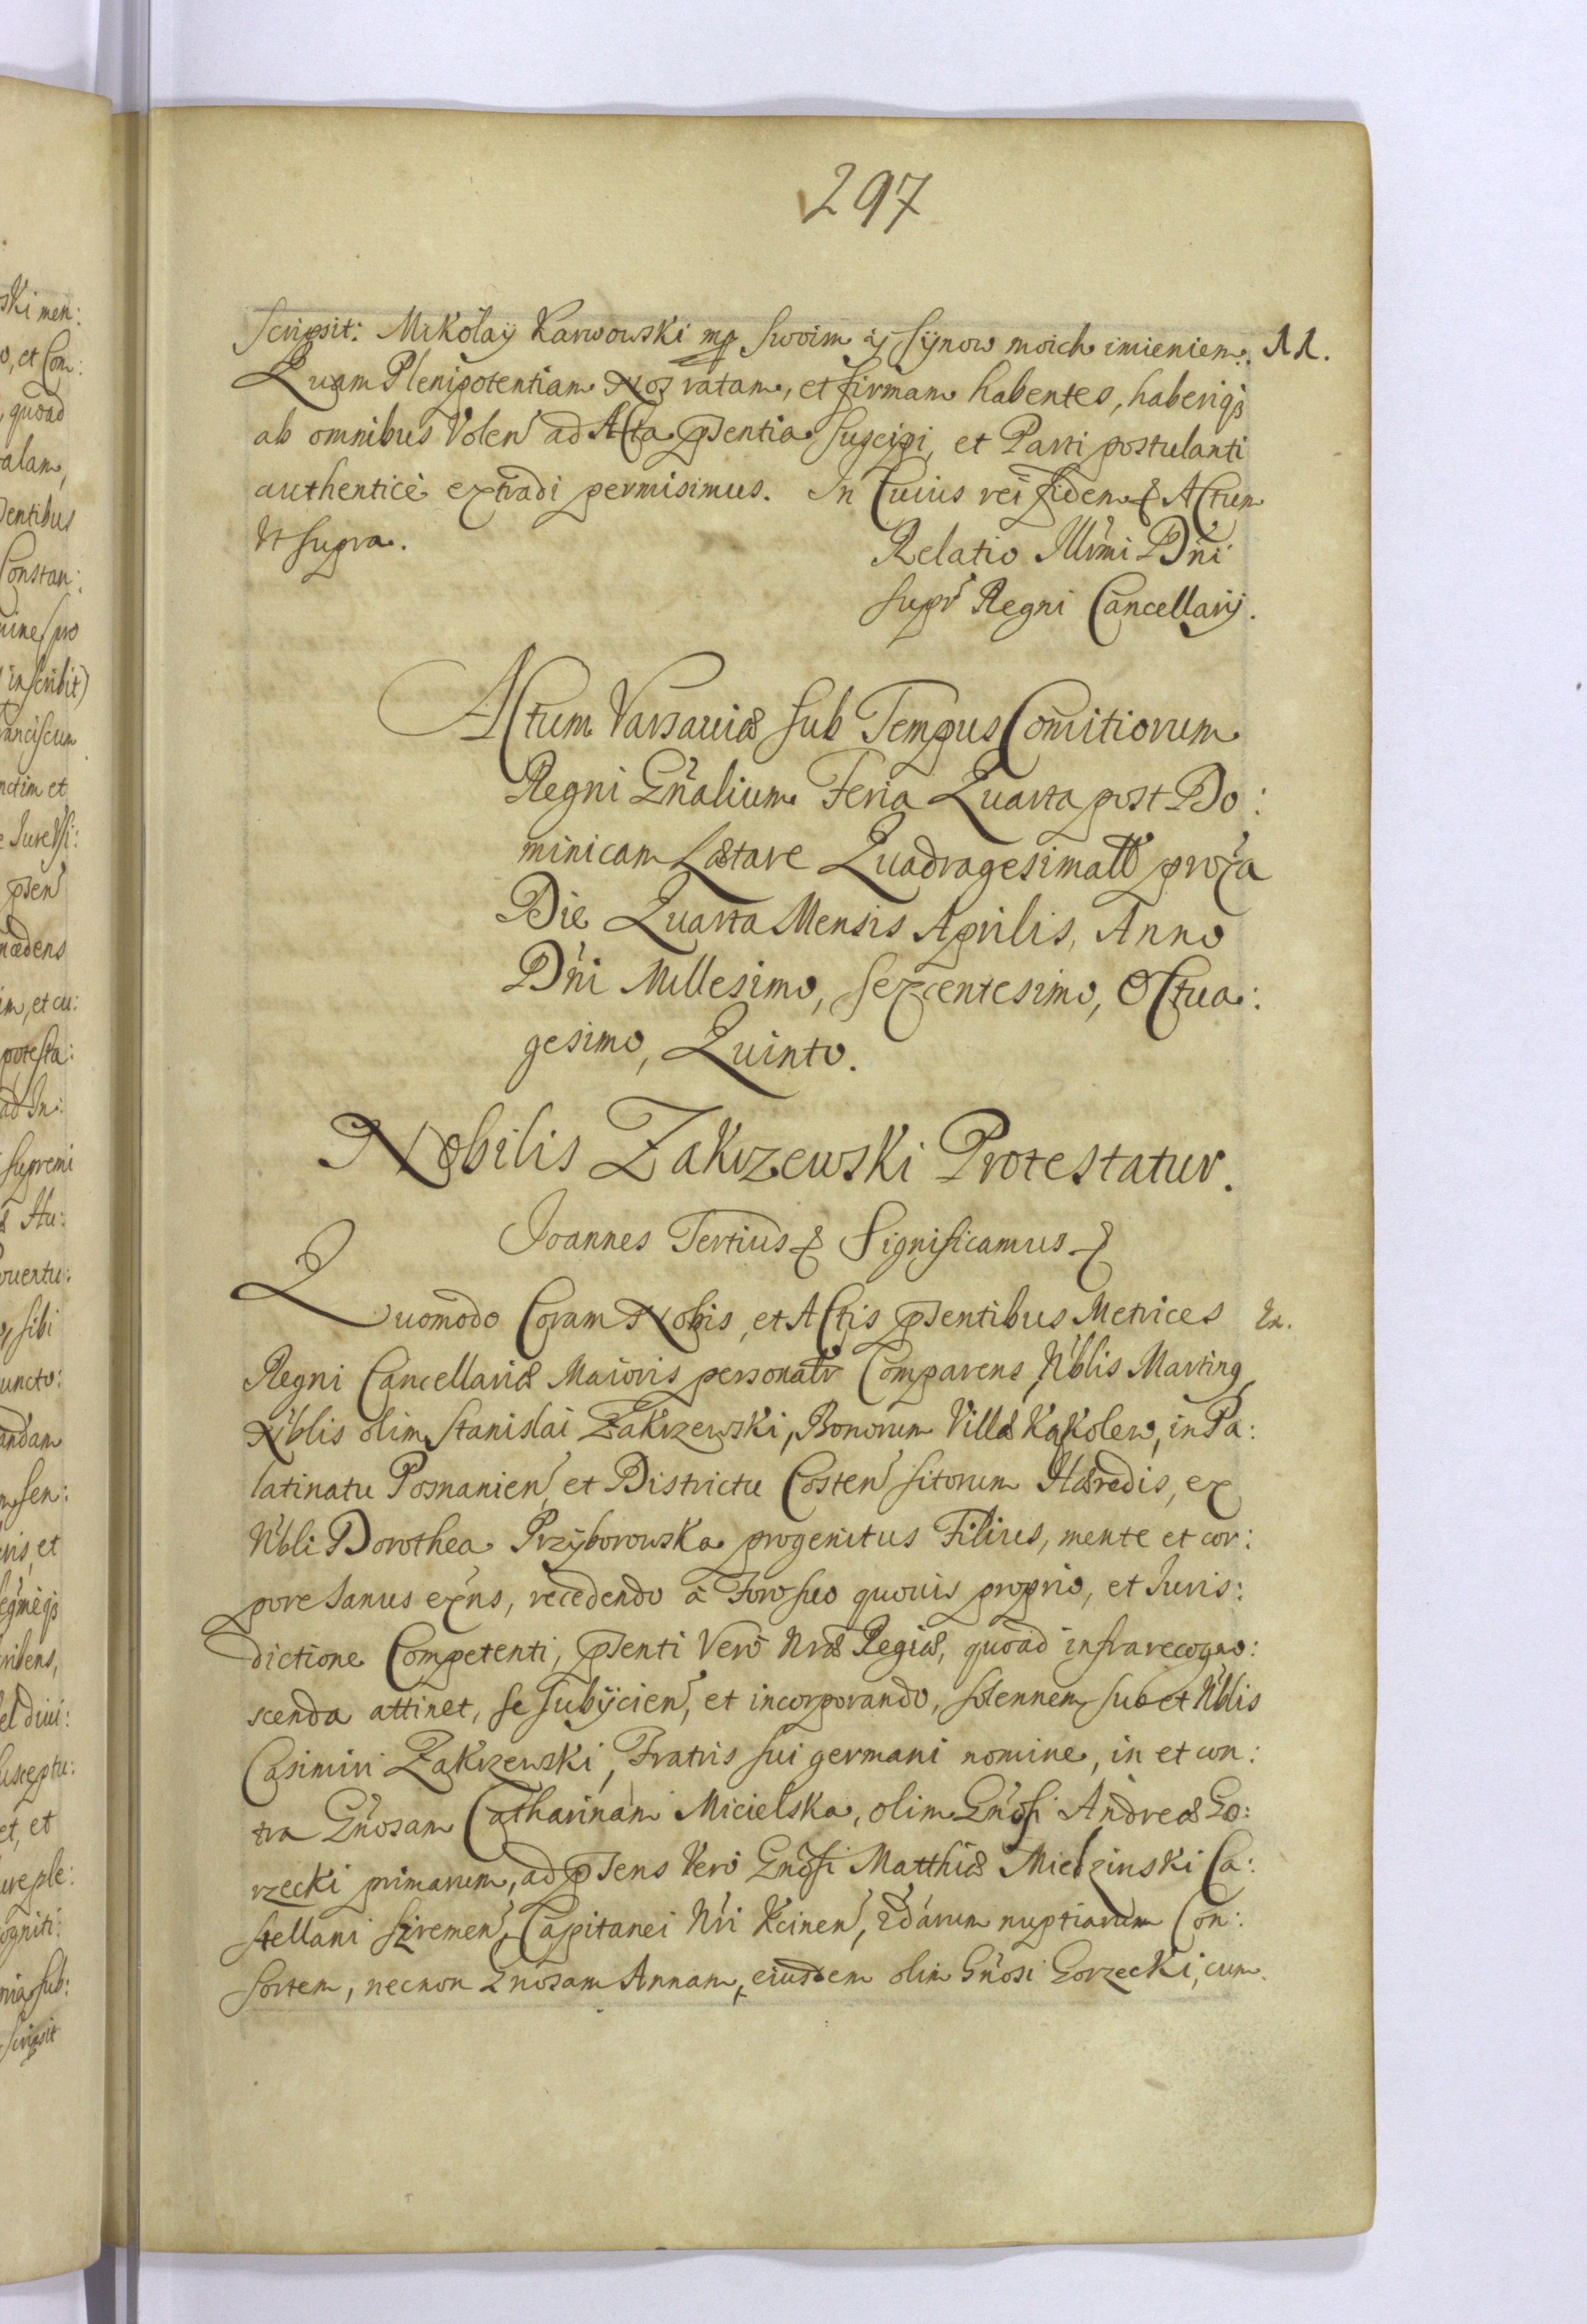 297
scripsit: Mikołaÿ Karwowski mp swoim ÿ sÿnow moich imieniem. 11.
Quam Plenipotentiam Nos ratam, et firmam habentes, haberiqz
ab omnibus Volen ad Acta pñtia suscipi, et Parti postulanti
authenticè extradi permisimus. In Cuius rei fidem & Actum
Vt supra.
Relatio Illrmi Dñi
supr Regni Cancellarij.
Actum Varsaviæ sub Tempus Comitiorum
Regni Gñalium Feria Quarta post Do:
minicam Lætare Quadragesimalē proxa
Die Quarta Mensis Aprilis, Anno
Dñi Millesimo, sexcentesimo, Octua:
gesimo, Quinto.
Nobilis Zakrzewski Protestatur.
Joannes Tertius & Significamus &
Quomodo Coram Nobis, et Actis pñsentibus Metrices
Regni Cancellariæ Maioris personalr Comparens, Nblis Marting
Nblis olim Stanislai Zakrzewski, Bonorum Villæ Kąkolew, in Pa:
latinatu Posnanien, et Districtu Costen sitorum Hæredis, ex
Nbli Dorothea Przÿborowska progenitus Filius, mente et cor:
pore sanus exñs, recedendo à Foro suo quovis proprio, et Juris:
dictione Competenti, pñsenti Verò Nræ Regiæ, quoad infrarecogno:
scenda attinet, se subÿcien, et incorporando, solennem suo et Nblis
Casimiri Zakrzewski, Fratris sui germani nomine, in et con:
tra Gñosam Catharinam Micielska, olim Gñosi Andreæ Go:
rzecki primarum, ad pñsens Verò Gñosi Matthiæ Miedzinski Ca:
stellani Szremen, Capitanei Nri Kcinen, 2dárum nuptiarum Con:
sortem, necnon Gnosam Annam, eiusdem olim Gñosi Gorzecki, cum